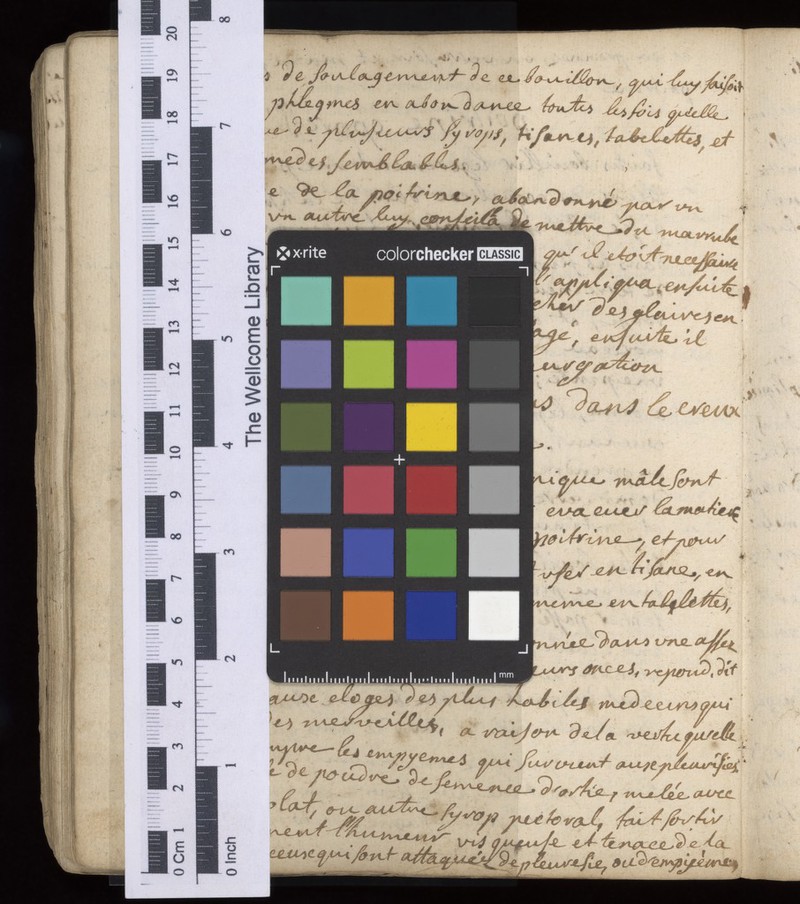 de soulagement de ce bouillon, qui luy faisoit
phlegmes en abondance toutes les fois qu'elle
de plusieurs syrops, tisanes, tabelettes, et
semblables.
de la poitrine, abandonné par un
un autre luy conseila de mettre du marrube
qu'il etoit necessaire
l'appliqua ensuite
des glaires en
ensuite il
dans le creux
mâle sont
evacuer la matiere
poitrine, et pour
user en tisane, en
meme en tabelettes,
dans une assez
onces, repond, dit
eloges des plus habiles medecins qui
des merveilles, a raison de la vertu qu'elle
les empyemes qui survient aux pleurésies
de poudre de semence d'ortie, melée avec
ou autre syrop pectoral, fait sortir
l'humeur visqueuse et tenace de la
ceux qui sont attaqués de pleuresie, ou d'empyeme,
x·rite colorchecker CLASSIC
mm
The Wellcome Library
0 Cm 1 2 3 4 5 6 7 8 9 10 11 12 13 14 15 16 17 18 19 20
0 Inch 1 2 3 4 5 6 7 8